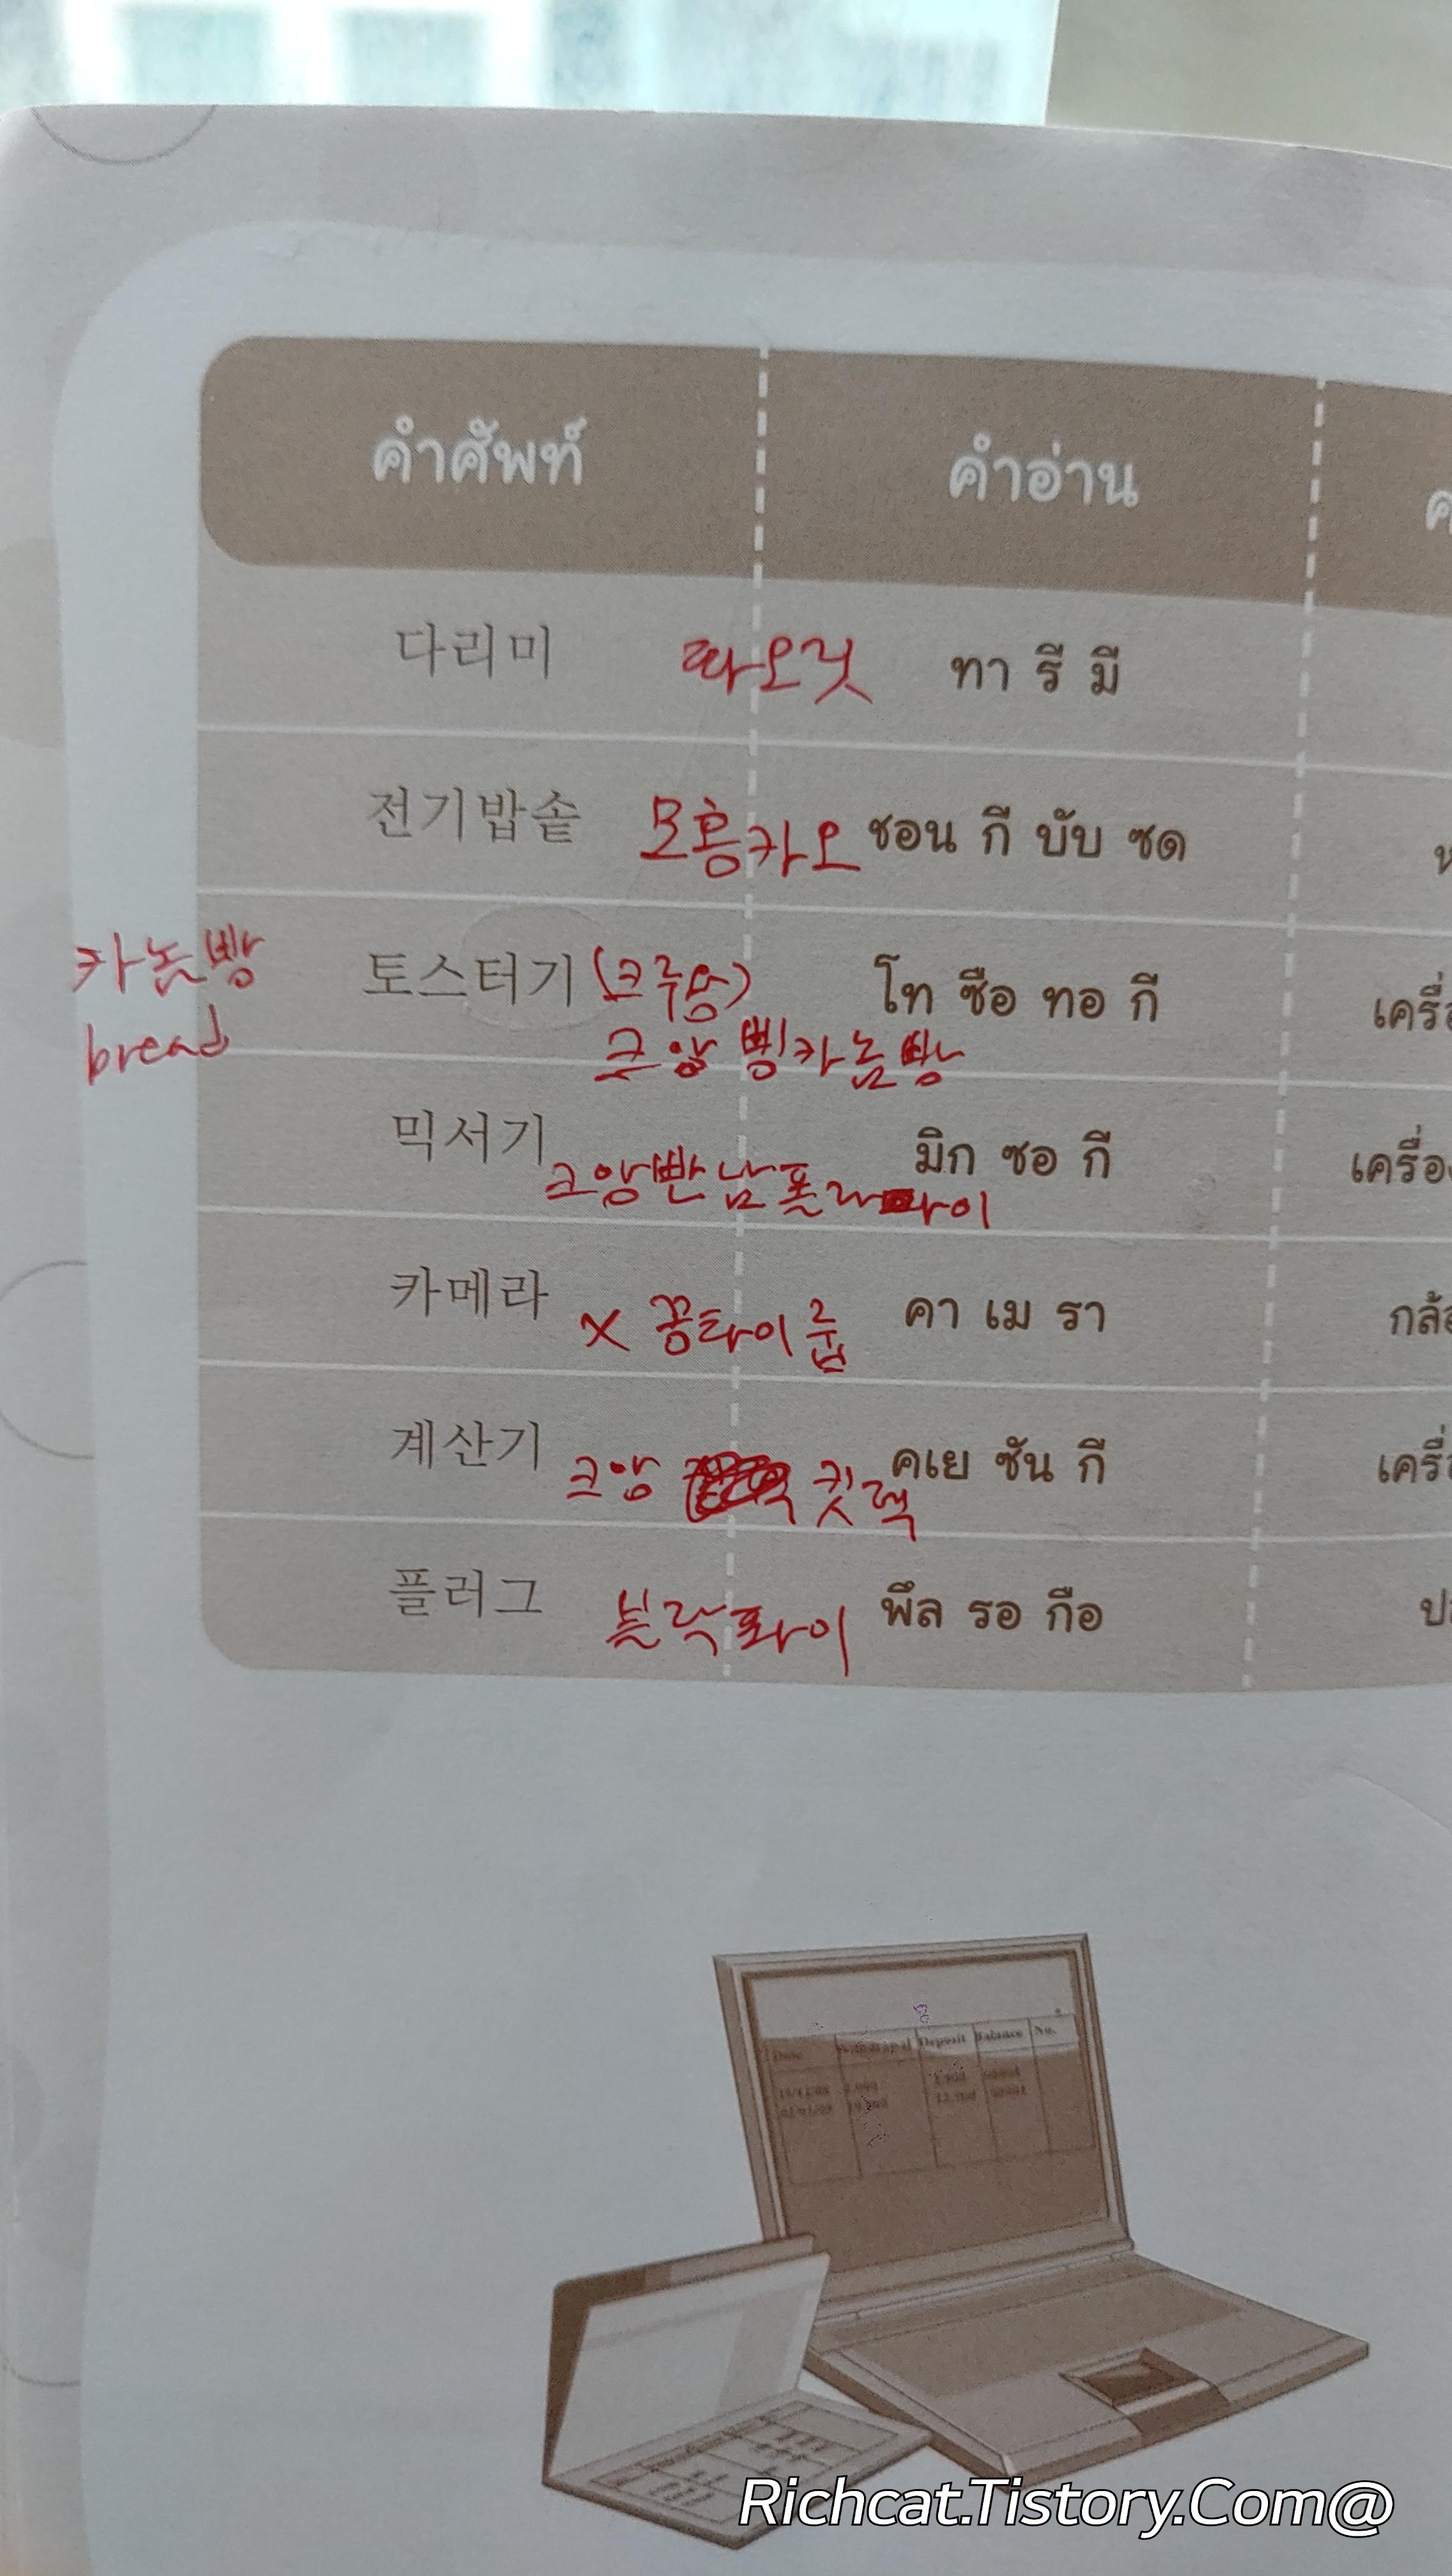 คำศัพท์ คำอ่าน
다리미 따오릿 ทา รี มี
전기밥솥 모홍카오 ชอน กี บับ ซด
카놈빵 토스터기 (크루앙) โท ซือ ทอ กี เครื่อ
bread 크앙 삥카놈빵
믹서기 มิก ซอ กี เครื่อง
크앙빤남폴라마이
카메라 x 꽁타이룹 คา เม รา กล้อ
계산기 크앙 킷렉 คเย ซัน กี เครื่
플러그 블락퐈이 พึล รอ กือ
Deposit Balance No.
Richcat.Tistory.Com@